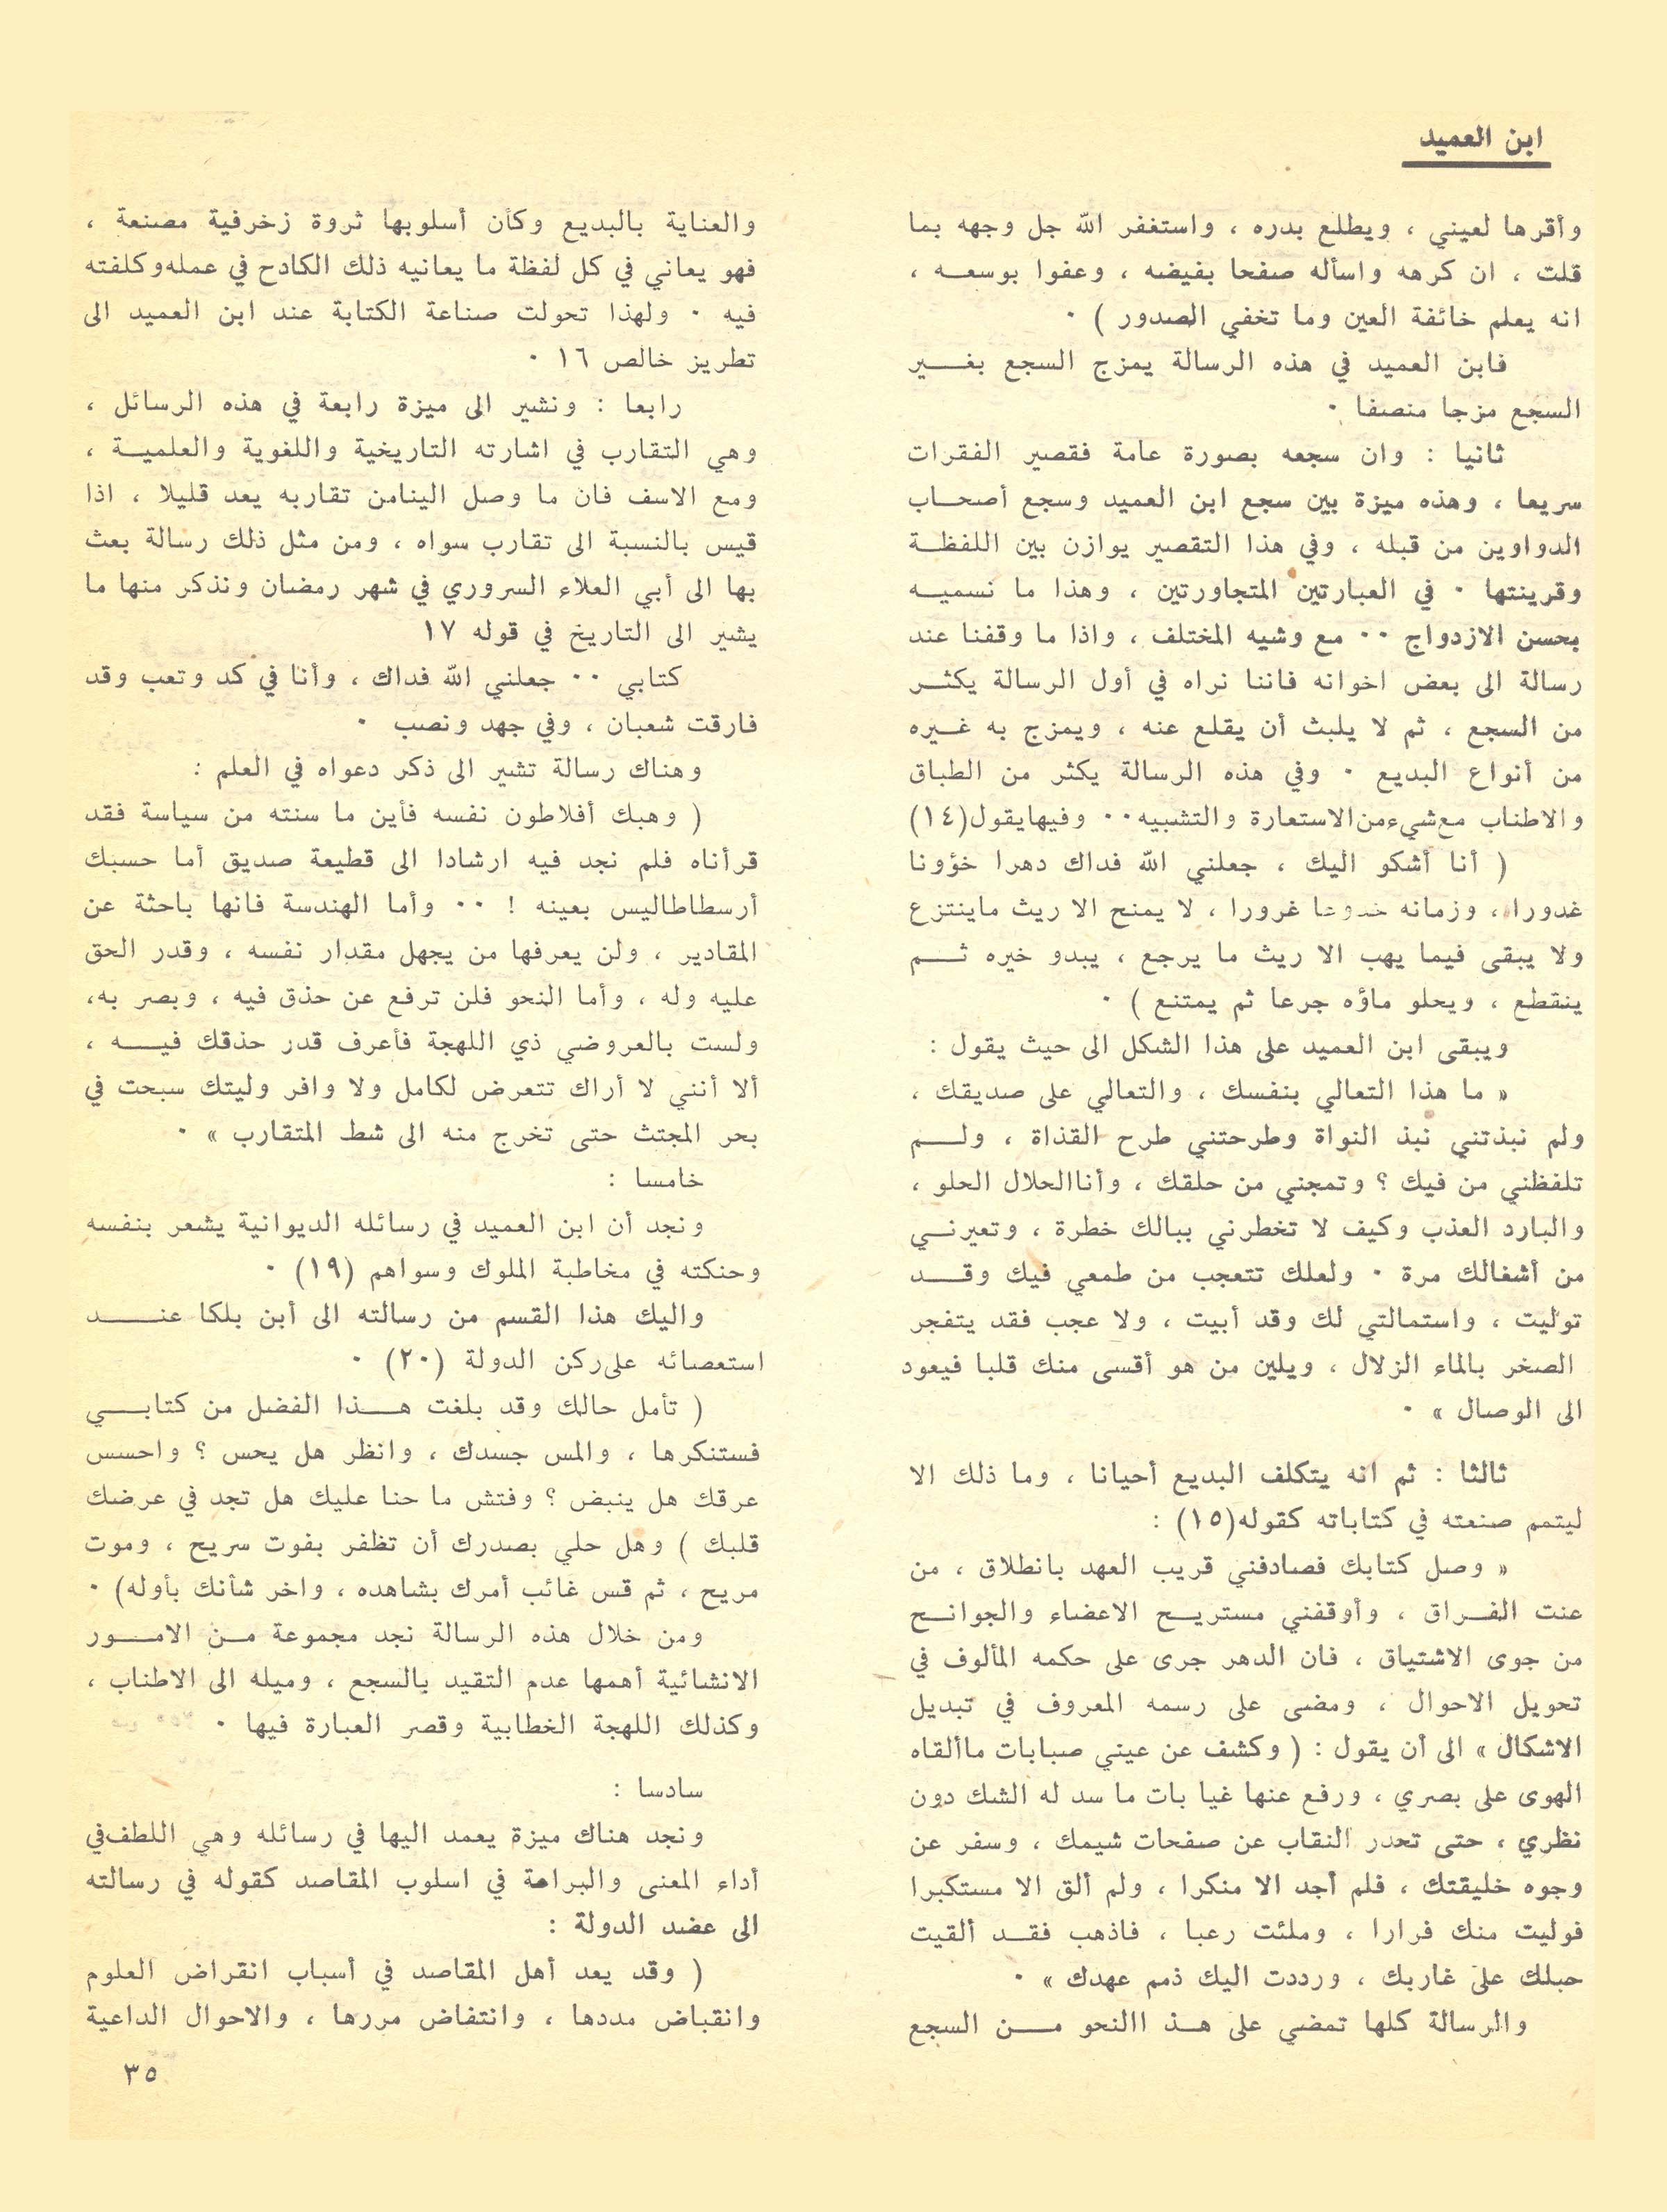 ابن العميد
وأقرها لعيني ، ويطلع بدره ، واستغفر الله جل وجهه بما
قلت ، ان كرهه واسأله صفحا بفيضه ، وعفوا بوسعه ،
انه يعلم خائفة العين وما تخفي الصدور ) ٠
فابن العميد في هذه الرسالة يمزج السجع بغير
السجع مزجا منصفا ٠
ثانيا : وان سجعه بصورة عامة فقصير الفقرات
سريعا ، وهذه ميزة بين سجع ابن العميد وسجع أصحاب
الدواوين من قبله ، وفي هذا التقصير يوازن بين اللفظة
وقرينتها ٠ في العبارتين المتجاورتين ، وهذا ما نسميه
بحسن الازدواج ٠٠ مع وشيه المختلف ، واذا ما وقفنا عند
رسالة الى بعض اخوانه فاننا نراه في أول الرسالة يكثر
من السجع ، ثم لا يلبث أن يقلع عنه ، ويمزج به غيره
من أنواع البديع ٠ وفي هذه الرسالة يكثر من الطباق
والاطناب مع شيء من الاستعارة والتشبيه ٠٠ وفيها يقول (١٤)
( أنا أشكو اليك ، جعلني الله فداك دهرا خؤونا
غدورا ، وزمانه خدوعا غرورا ، لا يمنح الا ريث ماينتزع
ولا يبقى فيما يهب الا ريث ما يرجع ، يبدو خيره ثم
ينقطع ، ويحلو ماؤه جرعا ثم يمتنع ) ٠
ويبقى ابن العميد على هذا الشكل الى حيث يقول :
« ما هذا التعالي بنفسك ، والتعالي على صديقك ،
ولم نبذتني نبذ النواة وطرحتني طرح القذاة ، ولم
تلفظني من فيك ؟ وتمجني من حلقك ، وأناالحلال الحلو ،
والبارد العذب وكيف لا تخطرني ببالك خطرة ، وتعيرني
من أشغالك مرة ٠ ولعلك تتعجب من طمعي فيك وقد
توليت ، واستمالتي لك وقد أبيت ، ولا عجب فقد يتفجر
الصخر بالماء الزلال ، ويلين من هو أقسى منك قلبا فيعود
الى الوصال » ٠
ثالثا : ثم انه يتكلف البديع أحيانا ، وما ذلك الا
ليتمم صنعته في كتاباته كقوله(١٥) :
« وصل كتابك فصادفني قريب العهد بانطلاق ، من
عنت الفراق ، وأوقفني مستريح الاعضاء والجوانح
من جوى الاشتياق ، فان الدهر جرى على حكمه المألوف في
تحويل الاحوال ، ومضى على رسمه المعروف في تبديل
الاشكال » الى أن يقول : ( وكشف عن عيني صبابات ماألقاه
الهوى على بصري ، ورفع عنها غيا بات ما سد له الشك دون
نظري ، حتى تحدر النقاب عن صفحات شيمك ، وسفر عن
وجوه خليقتك ، فلم أجد الا منكرا ، ولم ألق الا مستكبرا
فوليت منك فرارا ، وملئت رعبا ، فاذهب فقد ألقيت
حبلك على غاربك ، ورددت اليك ذمم عهدك » ٠
والرسالة كلها تمضي على هذ االنحو من السجع
والعناية بالبديع وكأن أسلوبها ثروة زخرفية مصنعة ،
فهو يعاني في كل لفظة ما يعانيه ذلك الكادح في عمله وكلفته
فيه ٠ ولهذا تحولت صناعة الكتابة عند ابن العميد الى
تطريز خالص ١٦ ٠
رابعا : ونشير الى ميزة رابعة في هذه الرسائل ،
وهي التقارب في اشارته التاريخية واللغوية والعلمية ،
ومع الاسف فان ما وصل الينامن تقاربه يعد قليلا ، اذا
قيس بالنسبة الى تقارب سواه ، ومن مثل ذلك رسالة بعث
بها الى أبي العلاء السروري في شهر رمضان ونذكر منها ما
يشير الى التاريخ في قوله ١٧
كتابي ٠٠ جعلني الله فداك ، وأنا في كد وتعب وقد
فارقت شعبان ، وفي جهد ونصب ٠
وهناك رسالة تشير الى ذكر دعواه في العلم :
( وهبك أفلاطون نفسه فأين ما سنته من سياسة فقد
قرأناه فلم نجد فيه ارشادا الى قطيعة صديق أما حسبك
أرسطاطاليس بعينه ! ٠٠ وأما الهندسة فانها باحثة عن
المقادير ، ولن يعرفها من يجهل مقدار نفسه ، وقدر الحق
عليه وله ، وأما النحو فلن ترفع عن حذق فيه ، وبصر به،
ولست بالعروضي ذي اللهجة فأعرف قدر حذقك فيه ،
ألا أنني لا أراك تتعرض لكامل ولا وافر وليتك سبحت في
بحر المجتث حتى تخرج منه الى شط المتقارب » ٠
خامسا :
ونجد أن ابن العميد في رسائله الديوانية يشعر بنفسه
وحنكته في مخاطبة الملوك وسواهم (١٩) ٠
واليك هذا القسم من رسالته الى أبن بلكا عند
استعصائه على ركن الدولة (٢٠) ٠
( تأمل حالك وقد بلغت هذا الفضل من كتابي
فستنكرها ، والمس جسدك ، وانظر هل يحس ؟ واحسس
عرقك هل ينبض ؟ وفتش ما حنا عليك هل تجد في عرضك
قلبك ) وهل حلي بصدرك أن تظفر بفوت سريح ، وموت
مريح ، ثم قس غائب أمرك بشاهده ، واخر شأنك بأوله) ٠
ومن خلال هذه الرسالة نجد مجموعة من الامور
الانشائية أهمها عدم التقيد بالسجع ، وميله الى الاطناب ،
وكذلك اللهجة الخطابية وقصر العبارة فيها ٠
سادسا :
ونجد هناك ميزة يعمد اليها في رسائله وهي اللطف في
أداء المعنى والبراعة في اسلوب المقاصد كقوله في رسالته
الى عضد الدولة :
( وقد يعد أهل المقاصد في أسباب انقراض العلوم
وانقباض مددها ، وانتفاض مررها ، والاحوال الداعية
٣٥